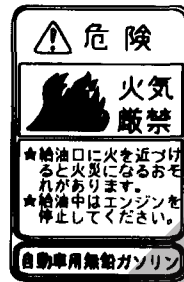 危険
火気
厳禁
★給油口に火を近づけ
ると火災になるおそ
れがあります。
★給油中はエンジンを
停止してください。
自動車用無鉛ガソリン